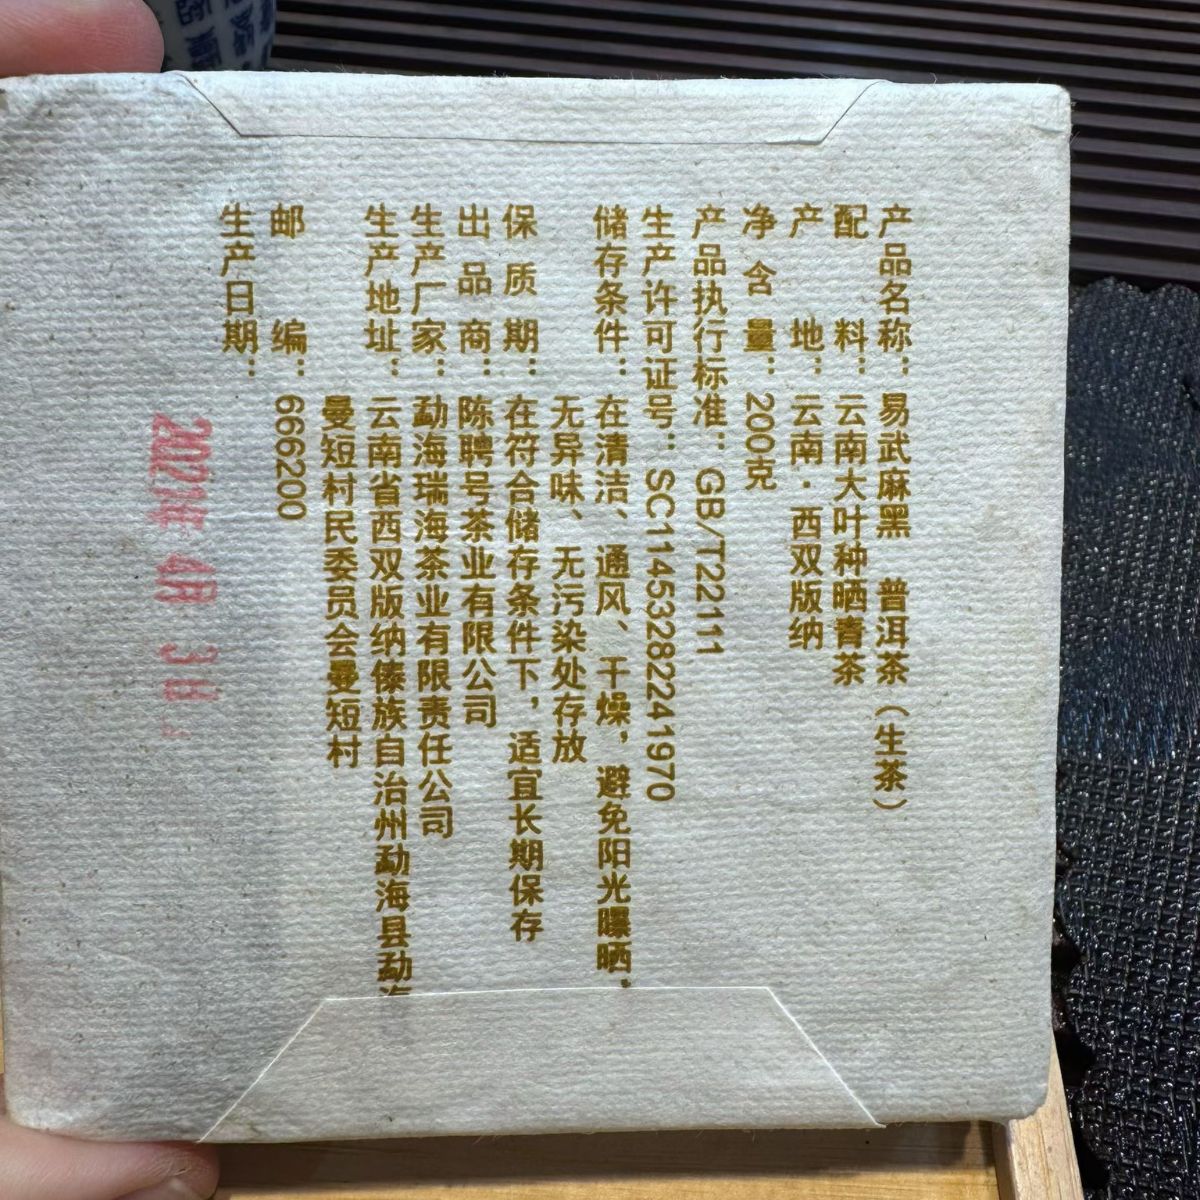 产品名称：易武麻黑 普洱茶（生茶）
配料：云南大叶种晒青茶
产地：云南·西双版纳
净含量：200克
产品执行标准：GB/T22111
生产许可证号：SC11453282241970
储存条件：在清洁、通风、干燥，避免阳光曝晒，
无异味、无污染处存放
保质期：在符合储存条件下，适宜长期保存
出品商：陈聘号茶业有限公司
生产厂家：勐海瑞海茶业有限责任公司
生产地址：云南省西双版纳傣族自治州勐海县勐海
曼短村民委员会曼短村
邮编：666200
生产日期：
2021年 4月 3日